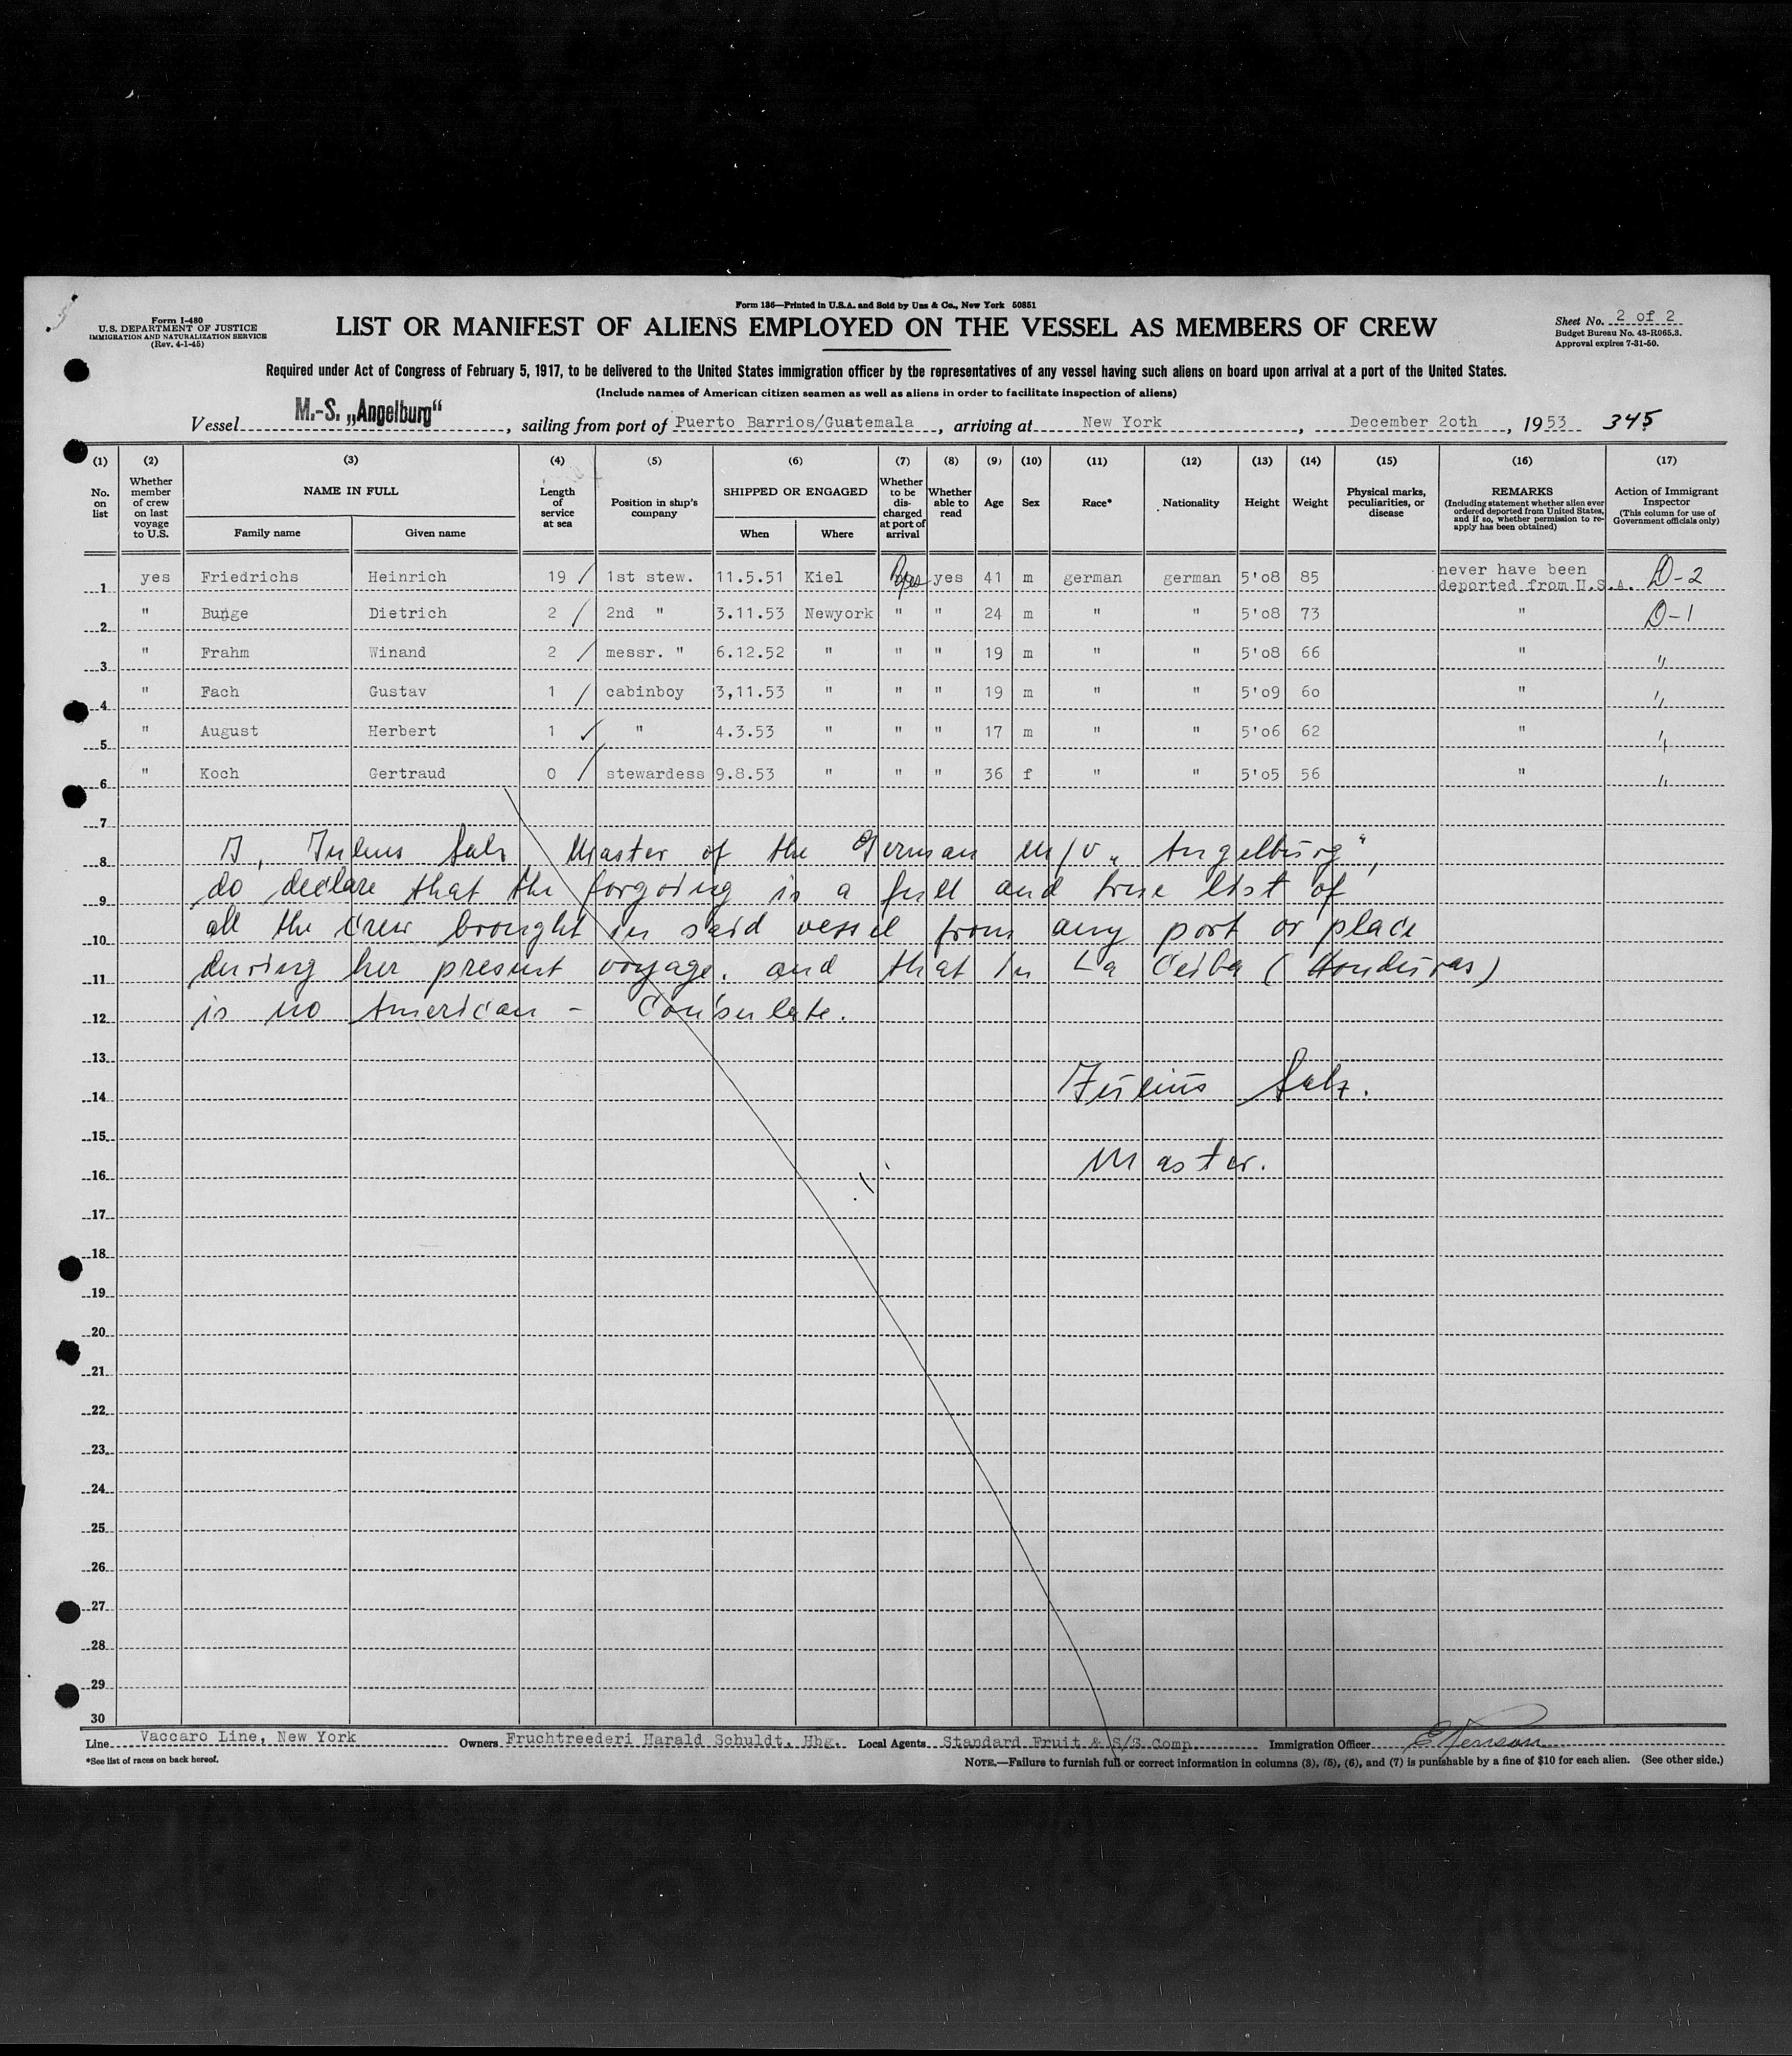 Form 136—Printed in U.S.A. and Sold by Unz & Co., New York 50851
Form I-480
U.S. DEPARTMENT OF JUSTICE
IMMIGRATION AND NATURALIZATION SERVICE
(Rev. 4-1-45)
LIST OR MANIFEST OF ALIENS EMPLOYED ON THE VESSEL AS MEMBERS OF CREW
Sheet No. 2 of 2
Budget Bureau No. 43-R065.3.
Approval expires 7-31-50.
Required under Act of Congress of February 5, 1917, to be delivered to the United States immigration officer by the representatives of any vessel having such aliens on board upon arrival at a port of the United States.
(Include names of American citizen seamen as well as aliens in order to facilitate inspection of aliens)
Vessel M.-S. „Angelburg“, sailing from port of Puerto Barrios/Guatemala, arriving at New York, December 2oth, 1953 345
(1) (2) (3) (4) (5) (6) (7) (8) (9) (10) (11) (12) (13) (14) (15) (16) (17)
No. on list
Whether member of crew on last voyage to U.S.
NAME IN FULL
Family name Given name
Length of service at sea
Position in ship's company
SHIPPED OR ENGAGED
When Where
Whether to be discharged at port of arrival
Whether able to read
Age
Sex
Race*
Nationality
Height
Weight
Physical marks, peculiarities, or disease
REMARKS
(Including statement whether alien ever ordered deported from United States, and if so, whether permission to re-apply has been obtained)
Action of Immigrant Inspector
(This column for use of Government officials only)
1 yes Friedrichs Heinrich 19 / 1st stew. 11.5.51 Kiel yes 41 m german german 5'o8 85 never have been deported from U.S.A. D-2
2 " Bunge Dietrich 2 / 2nd " 3.11.53 Newyork " " 24 m " " 5'o8 73 " D-1
3 " Frahm Winand 2 / messr. " 6.12.52 " " " 19 m " " 5'o8 66 " "
4 " Fach Gustav 1 / cabinboy 3,11.53 " " " 19 m " " 5'o9 6o " "
5 " August Herbert 1 ✓ " 4.3.53 " " " 17 m " " 5'o6 62 " "
6 " Koch Gertraud o / stewardess 9.8.53 " " " 36 f " " 5'o5 56 " "
7
8 I, Julius Salz, Master of the German M/V „Angelburg“,
9 do declare that the forgoing is a full and true list of
10 all the crew brought in said vessel from any port or place
11 during her present voyage. and that in La Ceiba (Honduras)
12 is no American - Consulate.
13
14 Julius Salz.
15
16 Master.
17
18
19
20
21
22
23
24
25
26
27
28
29
30
Line Vaccaro Line, New York Owners Fruchtreederi Harald Schuldt, Hbg. Local Agents Standard Fruit & S/S Comp. Immigration Officer
*See list of races on back hereof.
NOTE.—Failure to furnish full or correct information in columns (3), (5), (6), and (7) is punishable by a fine of $10 for each alien. (See other side.)